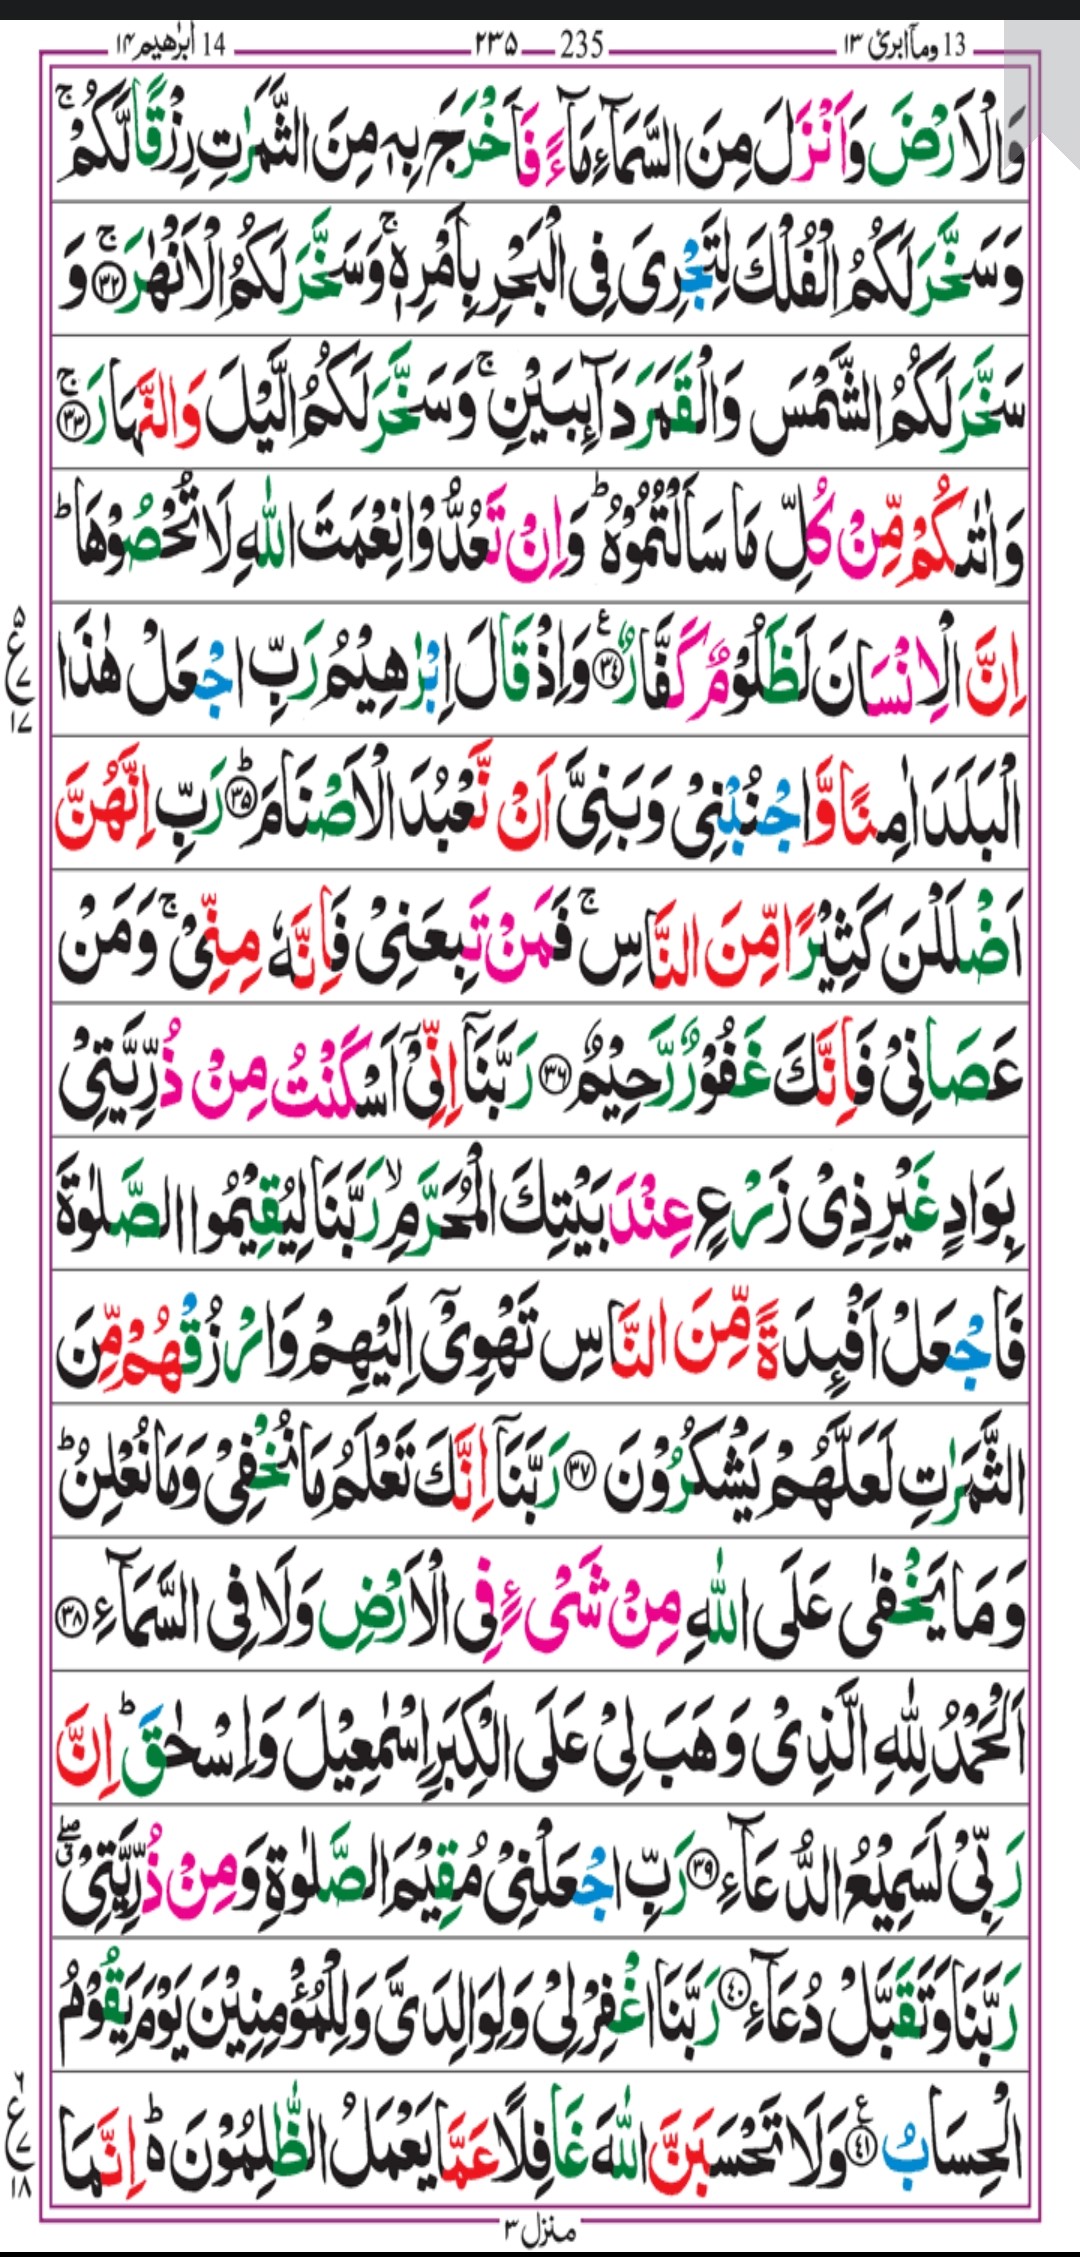 13 وماۤابرئ ١٣ 235 ٢٣٥ 14 ابرٰهيم ١٤
وَالْاَرْضَ وَاَنْزَلَ مِنَ السَّمَآءِ مَآءً فَاَخْرَجَ بِهٖ مِنَ الثَّمَرٰتِ رِزْقًا لَّكُمْ ۚ
وَسَخَّرَ لَكُمُ الْفُلْكَ لِتَجْرِىَ فِى الْبَحْرِ بِاَمْرِهٖ ۚ وَسَخَّرَ لَكُمُ الْاَنْهٰرَ ۚ ﴿٣٢﴾ وَ
سَخَّرَ لَكُمُ الشَّمْسَ وَالْقَمَرَ دَآئِبَيْنِ ۚ وَسَخَّرَ لَكُمُ الَّيْلَ وَالنَّهَارَ ۚ ﴿٣٣﴾
وَاٰتٰىكُمْ مِّنْ كُلِّ مَا سَاَلْتُمُوْهُ ؕ وَاِنْ تَعُدُّوْا نِعْمَتَ اللّٰهِ لَا تُحْصُوْهَا ؕ
اِنَّ الْاِنْسَانَ لَظَلُوْمٌ كَفَّارٌ ﴿٣٤﴾ ع وَاِذْ قَالَ اِبْرٰهِيْمُ رَبِّ اجْعَلْ هٰذَا
٥ ع ٧ ١٧
الْبَلَدَ اٰمِنًا وَّاجْنُبْنِىْ وَبَنِىَّ اَنْ نَّعْبُدَ الْاَصْنَامَ ؕ ﴿٣٥﴾ رَبِّ اِنَّهُنَّ
اَضْلَلْنَ كَثِيْرًا مِّنَ النَّاسِ ۚ فَمَنْ تَبِعَنِىْ فَاِنَّهٗ مِنِّىْ ۚ وَمَنْ
عَصَانِىْ فَاِنَّكَ غَفُوْرٌ رَّحِيْمٌ ﴿٣٦﴾ رَبَّنَآ اِنِّىْۤ اَسْكَنْتُ مِنْ ذُرِّيَّتِىْ
بِوَادٍ غَيْرِ ذِىْ زَرْعٍ عِنْدَ بَيْتِكَ الْمُحَرَّمِ ۙ رَبَّنَا لِيُقِيْمُوا الصَّلٰوةَ
فَاجْعَلْ اَفْئِدَةً مِّنَ النَّاسِ تَهْوِىْۤ اِلَيْهِمْ وَارْزُقْهُمْ مِّنَ
الثَّمَرٰتِ لَعَلَّهُمْ يَشْكُرُوْنَ ﴿٣٧﴾ رَبَّنَآ اِنَّكَ تَعْلَمُ مَا نُخْفِىْ وَمَا نُعْلِنُ ؕ
وَمَا يَخْفٰى عَلَى اللّٰهِ مِنْ شَىْءٍ فِى الْاَرْضِ وَلَا فِى السَّمَآءِ ﴿٣٨﴾
اَلْحَمْدُ لِلّٰهِ الَّذِىْ وَهَبَ لِىْ عَلَى الْكِبَرِ اِسْمٰعِيْلَ وَاِسْحٰقَ ؕ اِنَّ
رَبِّىْ لَسَمِيْعُ الدُّعَآءِ ﴿٣٩﴾ رَبِّ اجْعَلْنِىْ مُقِيْمَ الصَّلٰوةِ وَمِنْ ذُرِّيَّتِىْ ۖ
رَبَّنَا وَتَقَبَّلْ دُعَآءِ ﴿٤٠﴾ رَبَّنَا اغْفِرْ لِىْ وَلِوَالِدَىَّ وَلِلْمُؤْمِنِيْنَ يَوْمَ يَقُوْمُ
الْحِسَابُ ﴿٤١﴾ ع وَلَا تَحْسَبَنَّ اللّٰهَ غَافِلًا عَمَّا يَعْمَلُ الظّٰلِمُوْنَ ؕ۬ اِنَّمَا
٦ ع ٧ ١٨
منزل ٣